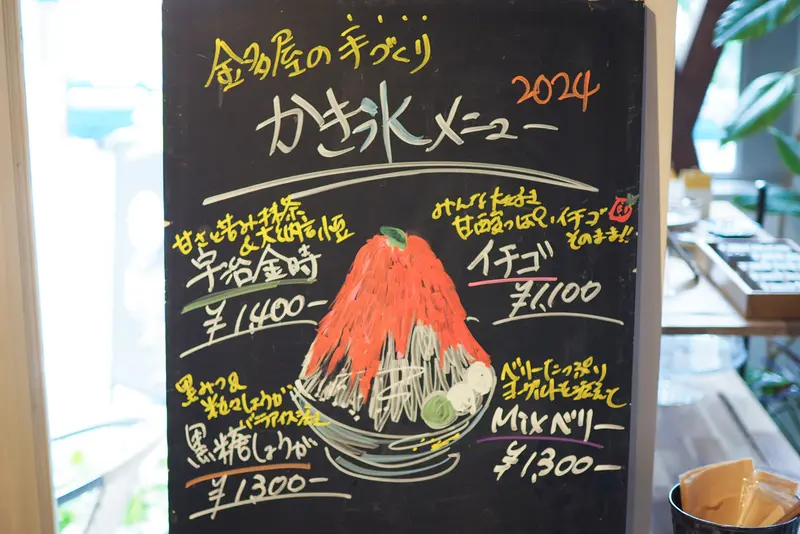 金多屋の手づくり
かき氷メニュー 2024
甘さと苦み抹茶
&大納言小豆
宇治金時
¥1,400-
みんな大好き
甘酸っぱいイチゴ
そのまま!!
イチゴ
¥1,100
黒みつ&
粒々しょうが
バニラアイス添え
黒糖しょうが
¥1,300-
ベリーたっぷり
ヨーグルトも添えて
Mixベリー
¥1,300-